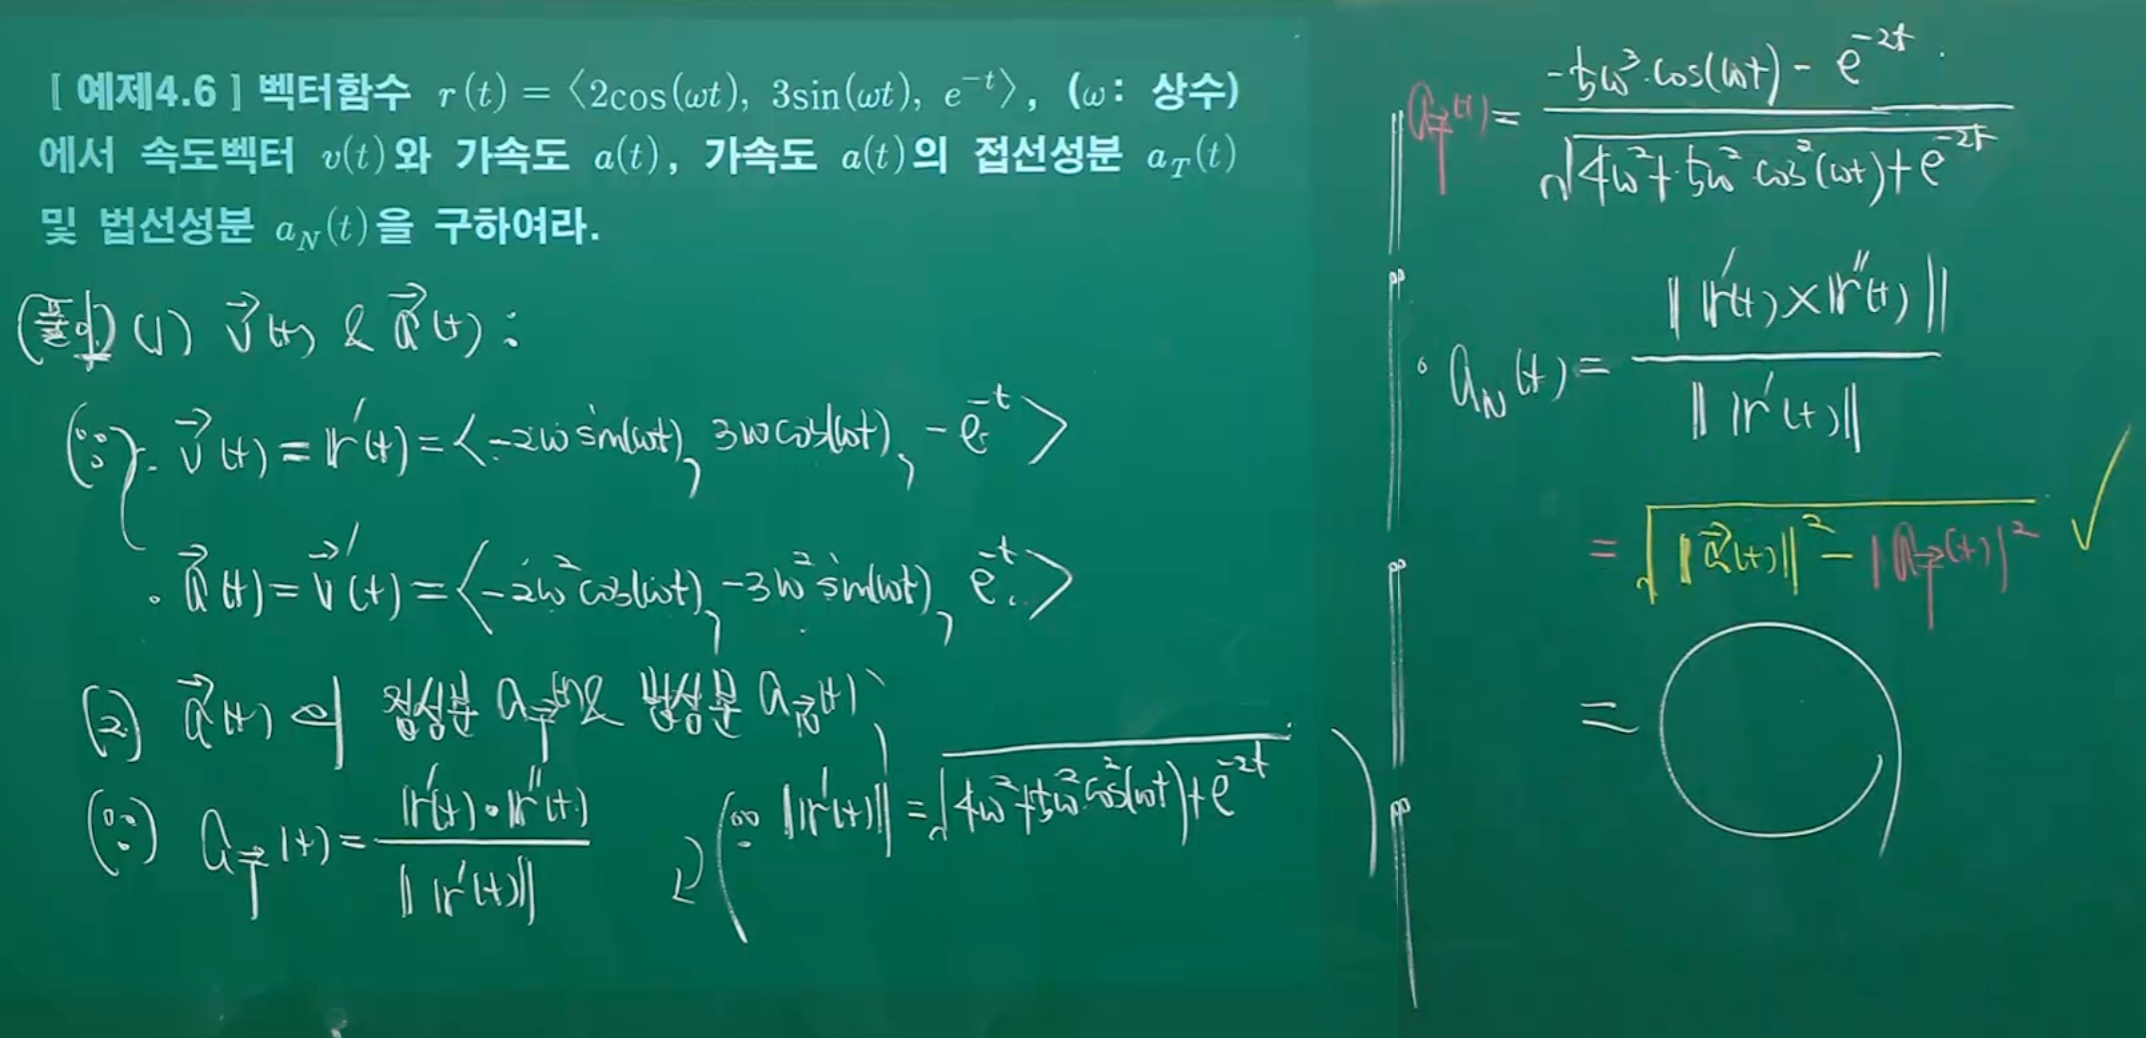 [ 예제4.6 ] 벡터함수 r(t) = ⟨2cos(ωt), 3sin(ωt), e^{-t}⟩, (ω: 상수)
에서 속도벡터 v(t)와 가속도 a(t), 가속도 a(t)의 접선성분 a_T(t)
및 법선성분 a_N(t)을 구하여라.
(풀이) (1) v⃗(t) & a⃗(t) :
(∵) · v⃗(t) = r'(t) = <-2ω sin(ωt), 3ω cos(ωt), -e^{-t}>
· a⃗(t) = v⃗'(t) = <-2ω² cos(ωt), -3ω² sin(ωt), e^{-t}>
(2) a⃗(t) 의 접성분 a_T⃗(t) & 법성분 a_N⃗(t)
(∵) a_T⃗(t) = r'(t)·r''(t) / ‖r'(t)‖ (∵ ‖r'(t)‖ = √(4ω²+5ω² cos²(ωt)+e^{-2t}))
a_T⃗(t) = -5ω³·cos(ωt) - e^{-2t} / √(4ω²+5ω² cos²(ωt)+e^{-2t})
· a_N(t) = ‖r'(t) × r''(t)‖ / ‖r'(t)‖
= √(‖a⃗(t)‖² - |a_T⃗(t)|²) ✓
= ○